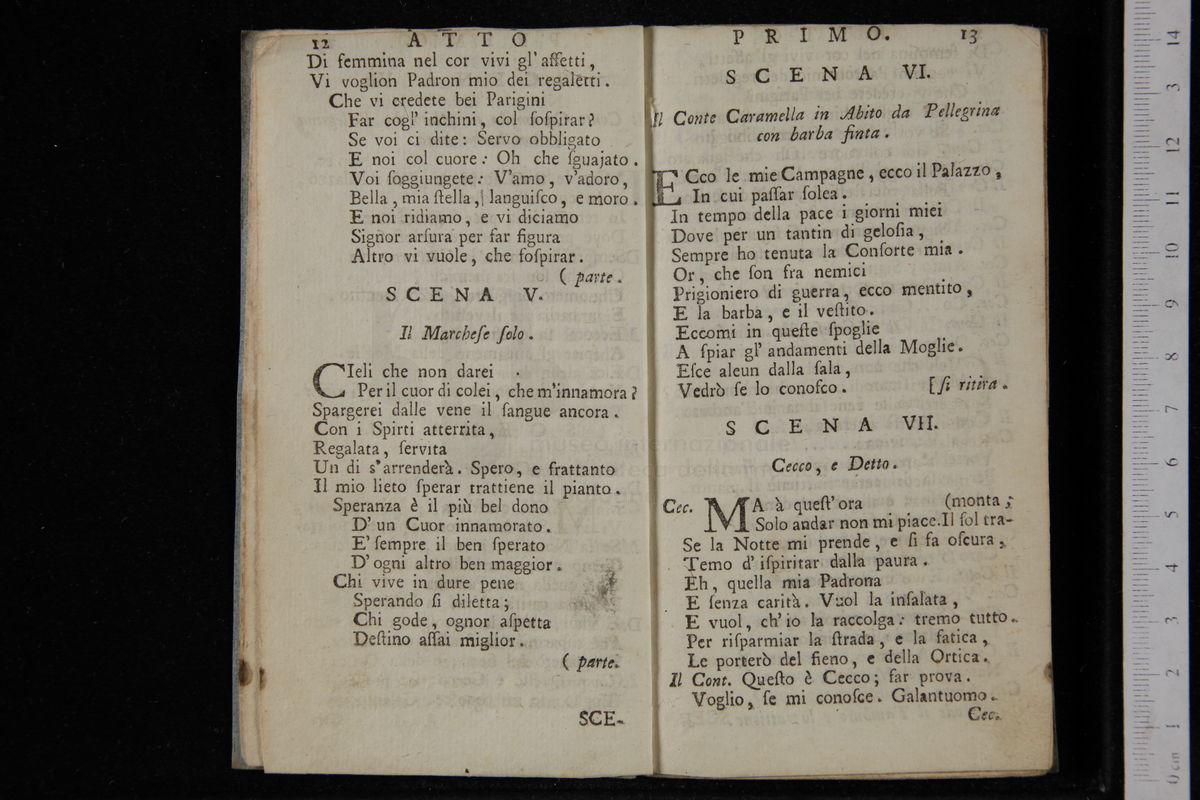 12 ATTO
Di femmina nel cor vivi gl' affetti,
Vi voglion Padron mio dei regaletti.
Che vi credete bei Parigini
Far cogl' inchini, col ſoſpirar?
Se voi ci dite: Servo obbligato
E noi col cuore: Oh che ſguajato.
Voi ſoggiungete: V'amo, v'adoro,
Bella, mia ſtella, languiſco, e moro.
E noi ridiamo, e vi diciamo
Signor arſura per far figura
Altro vi vuole, che ſoſpirar.
( parte.
SCENA V.
Il Marcheſe ſolo.
CIeli che non darei
Per il cuor di colei, che m'innamora?
Spargerei dalle vene il ſangue ancora.
Con i Spirti atterrita,
Regalata, ſervita
Un di s'arrenderà. Spero, e frattanto
Il mio lieto ſperar trattiene il pianto.
Speranza è il più bel dono
D' un Cuor innamorato.
E' ſempre il ben ſperato
D' ogni altro ben maggior.
Chi vive in dure pene
Sperando ſi diletta;
Chi gode, ognor aſpetta
Deſtino aſſai miglior.
( parte.
SCE-
PRIMO. 13
SCENA VI.
Il Conte Caramella in Abito da Pellegrina
con barba finta.
ECco le mie Campagne, ecco il Palazzo,
In cui paſſar ſolea.
In tempo della pace i giorni miei
Dove per un tantin di geloſia,
Sempre ho tenuta la Conſorte mia.
Or, che ſon fra nemici
Prigioniero di guerra, ecco mentito,
E la barba, e il veſtito.
Eccomi in queſte ſpoglie
A ſpiar gl' andamenti della Moglie.
Eſce aleun dalla ſala,
Vedrò ſe lo conoſco. [ſi ritira.
SCENA VII.
Cecco, e Detto.
Cec. MA à queſt' ora (monta;
Solo andar non mi piace. Il ſol tra-
Se la Notte mi prende, e ſi fa oſcura,
Temo d' iſpiritar dalla paura.
Eh, quella mia Padrona
E ſenza carità. Vuol la inſalata,
E vuol, ch' io la raccolga: tremo tutto.
Per riſparmiar la ſtrada, e la fatica,
Le porterò del fieno, e della Ortica.
Il Cont. Queſto è Cecco; far prova.
Voglio, ſe mi conoſce. Galantuomo.
Cec.
museo internazionale
0 cm 1 2 3 4 5 6 7 8 9 10 11 12 13 14